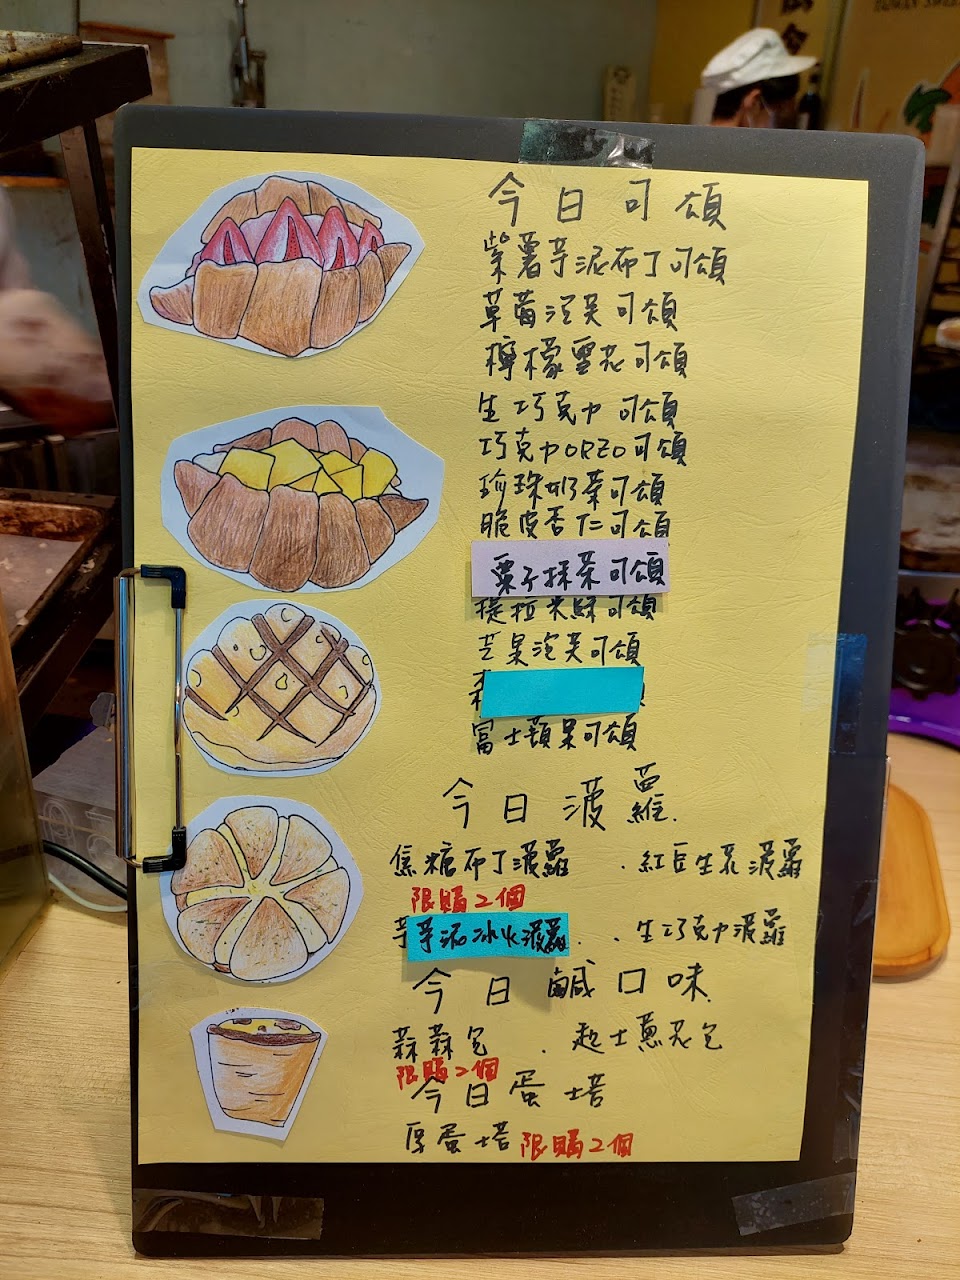 今日可頌
紫薯芋泥布丁可頌
草莓泡芙可頌
檸檬雪花可頌
生巧克力可頌
巧克力OREO可頌
珍珠奶茶可頌
脆皮杏仁可頌
栗子抹茶可頌
提拉米酥可頌
芒果泡芙可頌
富士蘋果可頌
今日菠蘿.
焦糖布丁菠蘿 .紅豆生乳菠蘿
限購2個
芋芋泥冰火菠蘿. .生巧克力菠蘿
今日鹹口味.
蒜蒜包 .起士蔥花包
限購2個
今日蛋塔
厚蛋塔 限購2個